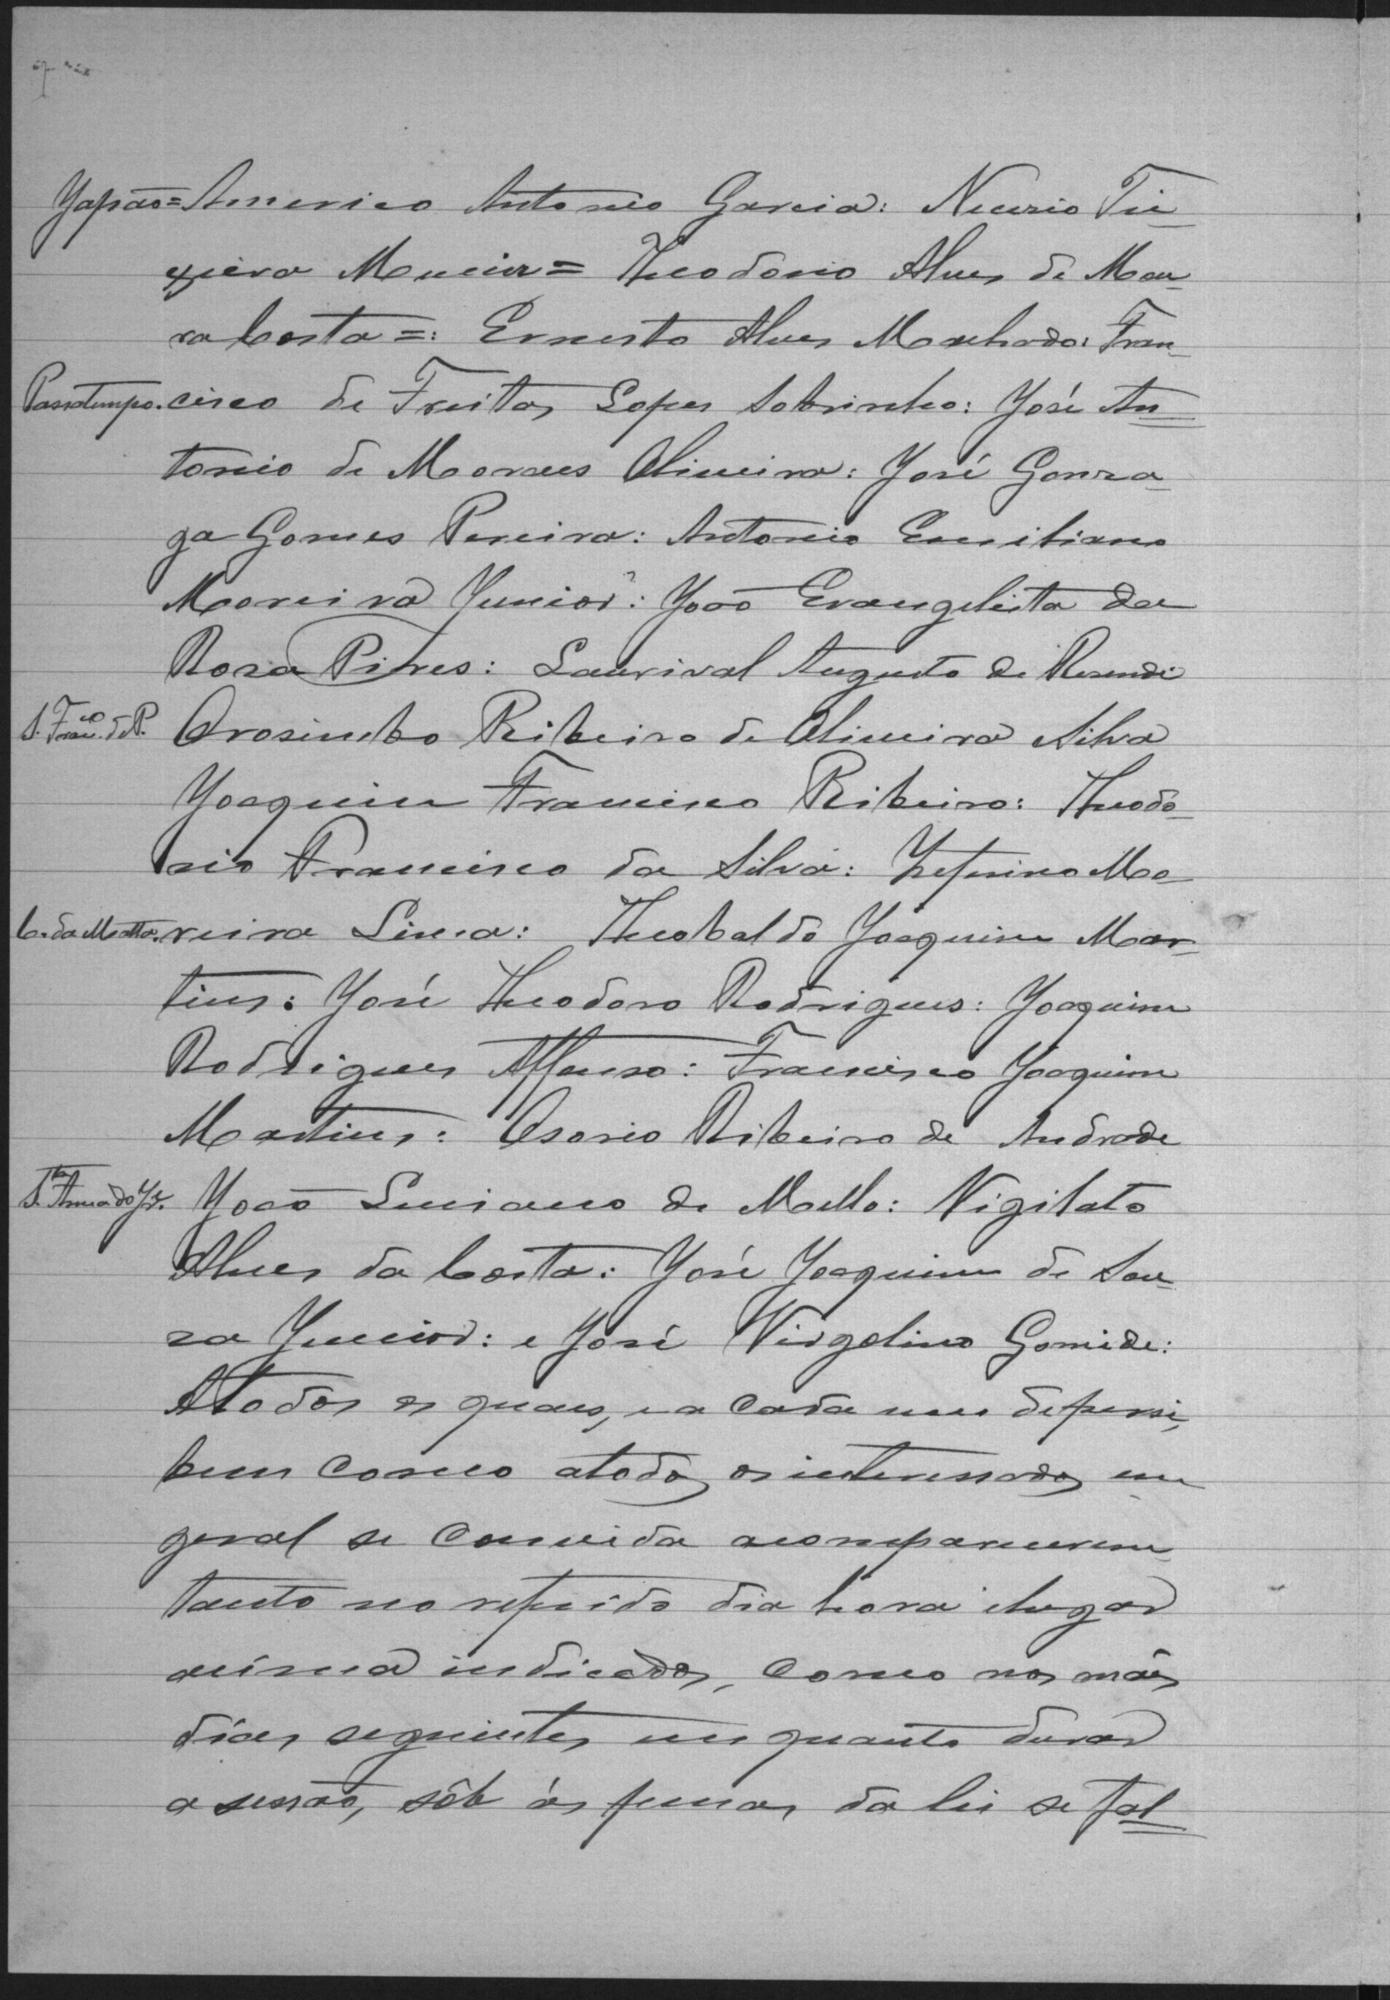 Yapão = Americo Antonio Garcia: Necesio Tei-
xeira Muniz = Theodorio Alves de Mou-
ra Costa =: Ernesto Alves Machado: Fran-
Passatempo. cisco de Freitas Lopes Sobrinho: José An-
tonio de Moraes Oliveira: José Gonza-
ga Gomes Pereira: Antonio Emiliano
Moreira Junior: João Evangelista da
Rosa Pires: Laurival Augusto de Resende
S. Fran.co de P. Orosimbo Ribeiro de Oliveira Silva
Joaquim Francisco Ribeiro: Theodo-
rio Francisco da Silva: Zeferino Mo-
C. da Matta. reira Lima: Theobaldo Joaquim Mar-
tins: José Theodoro Rodrigues: Joaquim
Rodrigues Affonso: Francisco Joaquim
Martins: Osorio Ribeiro de Andrade
S.ta Anna do J.é João Luciano de Mello: Vigilato
Alves da Costa: José Joaquim de Sou-
za Junior: e José Virgolino Gomide:
Atodos os quaes, e a cada um depersi,
bem como atodos os interessados em
geral se convida acomparecerem
tanto no referido dia hora elugar
acima indicados, como nos máis
días seguintes em quanto durar
a sessão, sôb ás penas da lei se fal-